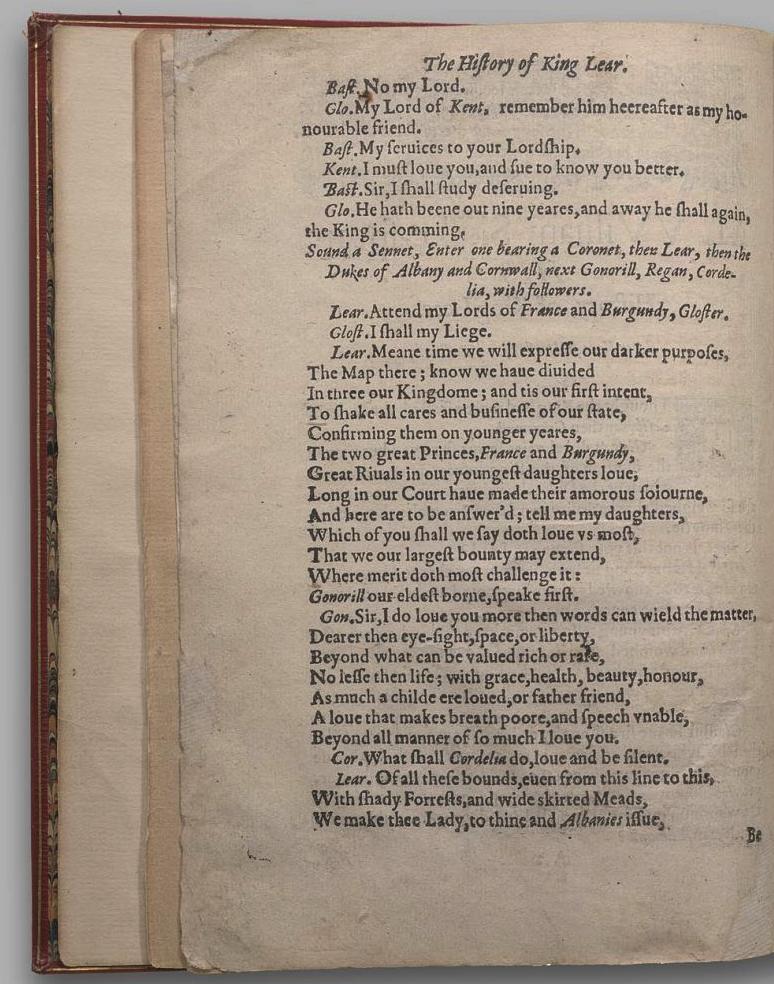 The Hiſtory of King Lear.
Baſt. No my Lord.
Glo. My Lord of Kent, remember him heereafter as my ho-
nourable friend.
Baſt. My ſeruices to your Lordſhip.
Kent. I muſt loue you, and ſue to know you better.
Baſt. Sir, I ſhall ſtudy deſeruing.
Glo. He hath beene out nine yeares, and away he ſhall again,
the King is comming.
Sound a Sennet, Enter one bearing a Coronet, then Lear, then the
Dukes of Albany and Cornwall, next Gonorill, Regan, Corde-
lia, with followers.
Lear. Attend my Lords of France and Burgundy, Gloſter.
Gloſt. I ſhall my Liege.
Lear. Meane time we will expreſſe our darker purpoſes,
The Map there; know we haue diuided
In three our Kingdome; and tis our firſt intent,
To ſhake all cares and buſineſſe of our ſtate,
Confirming them on younger yeares,
The two great Princes, France and Burgundy,
Great Riuals in our youngeſt daughters loue,
Long in our Court haue made their amorous ſoiourne,
And here are to be anſwer'd; tell me my daughters,
Which of you ſhall we ſay doth loue vs moſt,
That we our largeſt bounty may extend,
Where merit doth moſt challenge it:
Gonorill our eldeſt borne, ſpeake firſt.
Gon. Sir, I do loue you more then words can wield the matter,
Dearer then eye-ſight, ſpace, or liberty,
Beyond what can be valued rich or rare,
No leſſe then life; with grace, health, beauty, honour,
As much a childe ere loued, or father friend,
A loue that makes breath poore, and ſpeech vnable,
Beyond all manner of ſo much I loue you.
Cor. What ſhall Cordelia do, loue and be ſilent.
Lear. Of all theſe bounds, euen from this line to this,
With ſhady Forreſts, and wide skirted Meads,
We make thee Lady, to thine and Albanies iſſue,
Be